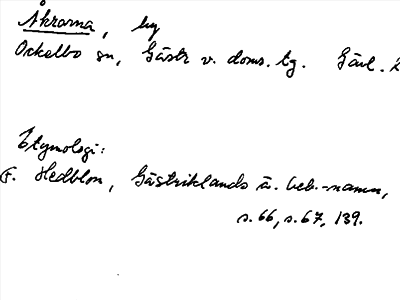 Åkrarna, by
Ockelbo sn, Gästr v. doms. tg. Gävl. L
Etymologi:
F. Hedblom, Gästriklands ä. beb.-namn,
s. 66, s. 67, 139.